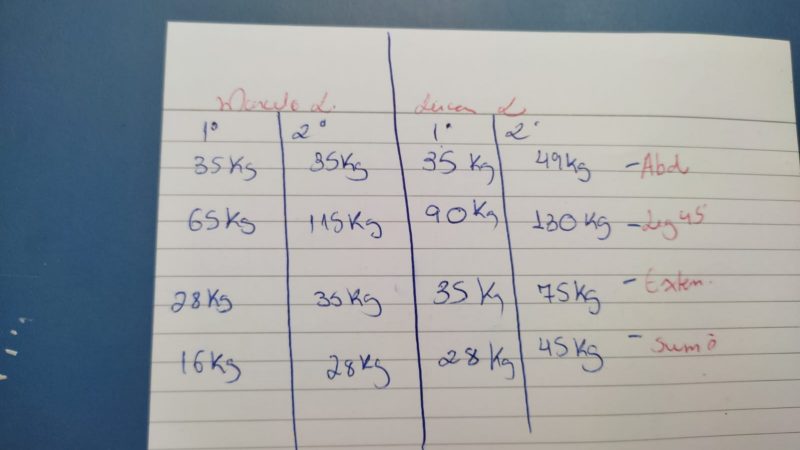 Marcelo L. Lucas L
1º 2º 1º 2º
35Kg 35Kg 35 Kg 49Kg - Abd
65Kg 115Kg 90Kg 130Kg - Leg 45
28Kg 35Kg 35Kg 75Kg - Exten.
16Kg 28Kg 28Kg 45Kg - Sumô